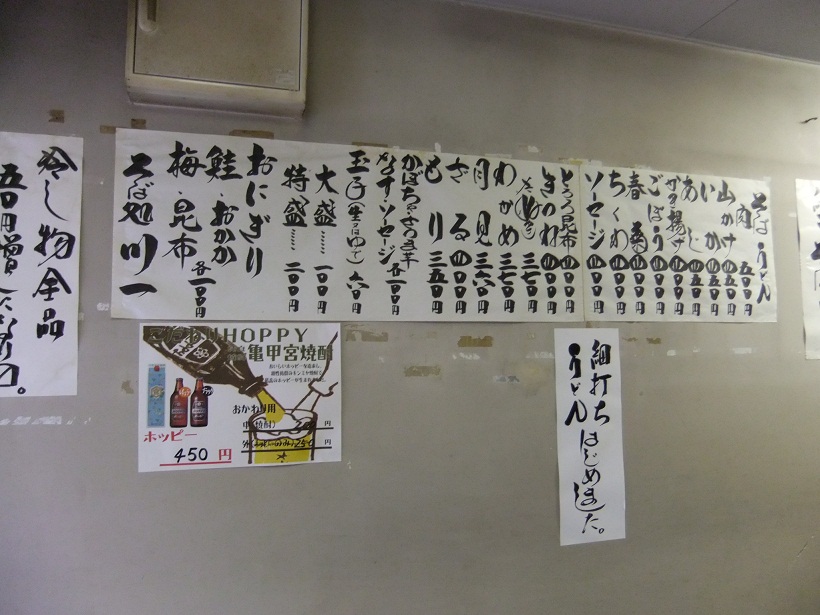 そばうどん
肉 五〇〇円
山かけ 四五〇円
いか 四五〇円
あじ 四五〇円
かき揚げ 四〇〇円
ごぼう 四〇〇円
春菊 四〇〇円
ちくわ 四〇〇円
ソーセージ 四〇〇円
とろろ昆布 四〇〇円
きつね 四〇〇円
たぬき 三七〇円
わかめ 三七〇円
月見 三六〇円
ざる 四〇〇円
もり 三五〇円
かぼちゃ・さつま芋
なす・ソーセージ 各一〇〇円
玉子(生又はゆで) 六〇円
大盛…… 一〇〇円
特盛…… 二〇〇円
おにぎり
鮭・おかか
梅・昆布 各一〇〇円
そば処 川一
冷し物全品
五〇円増
HOPPY
亀甲宮焼酎
おかわり用
中(焼酎)
円
250 円
ホッピー
450円
細打ち
うどん
はじめました。